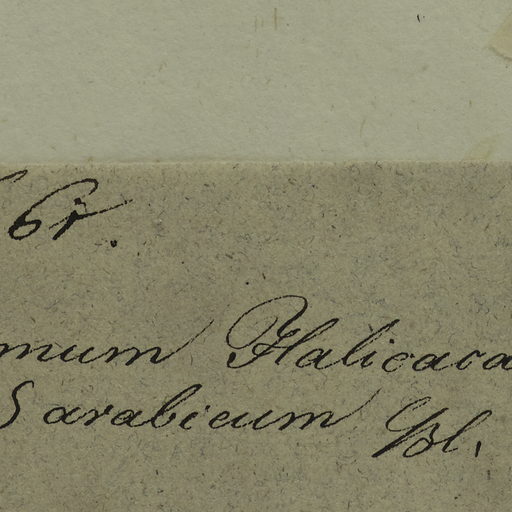 6r.
mum Halicaca
S arabicum Bl.